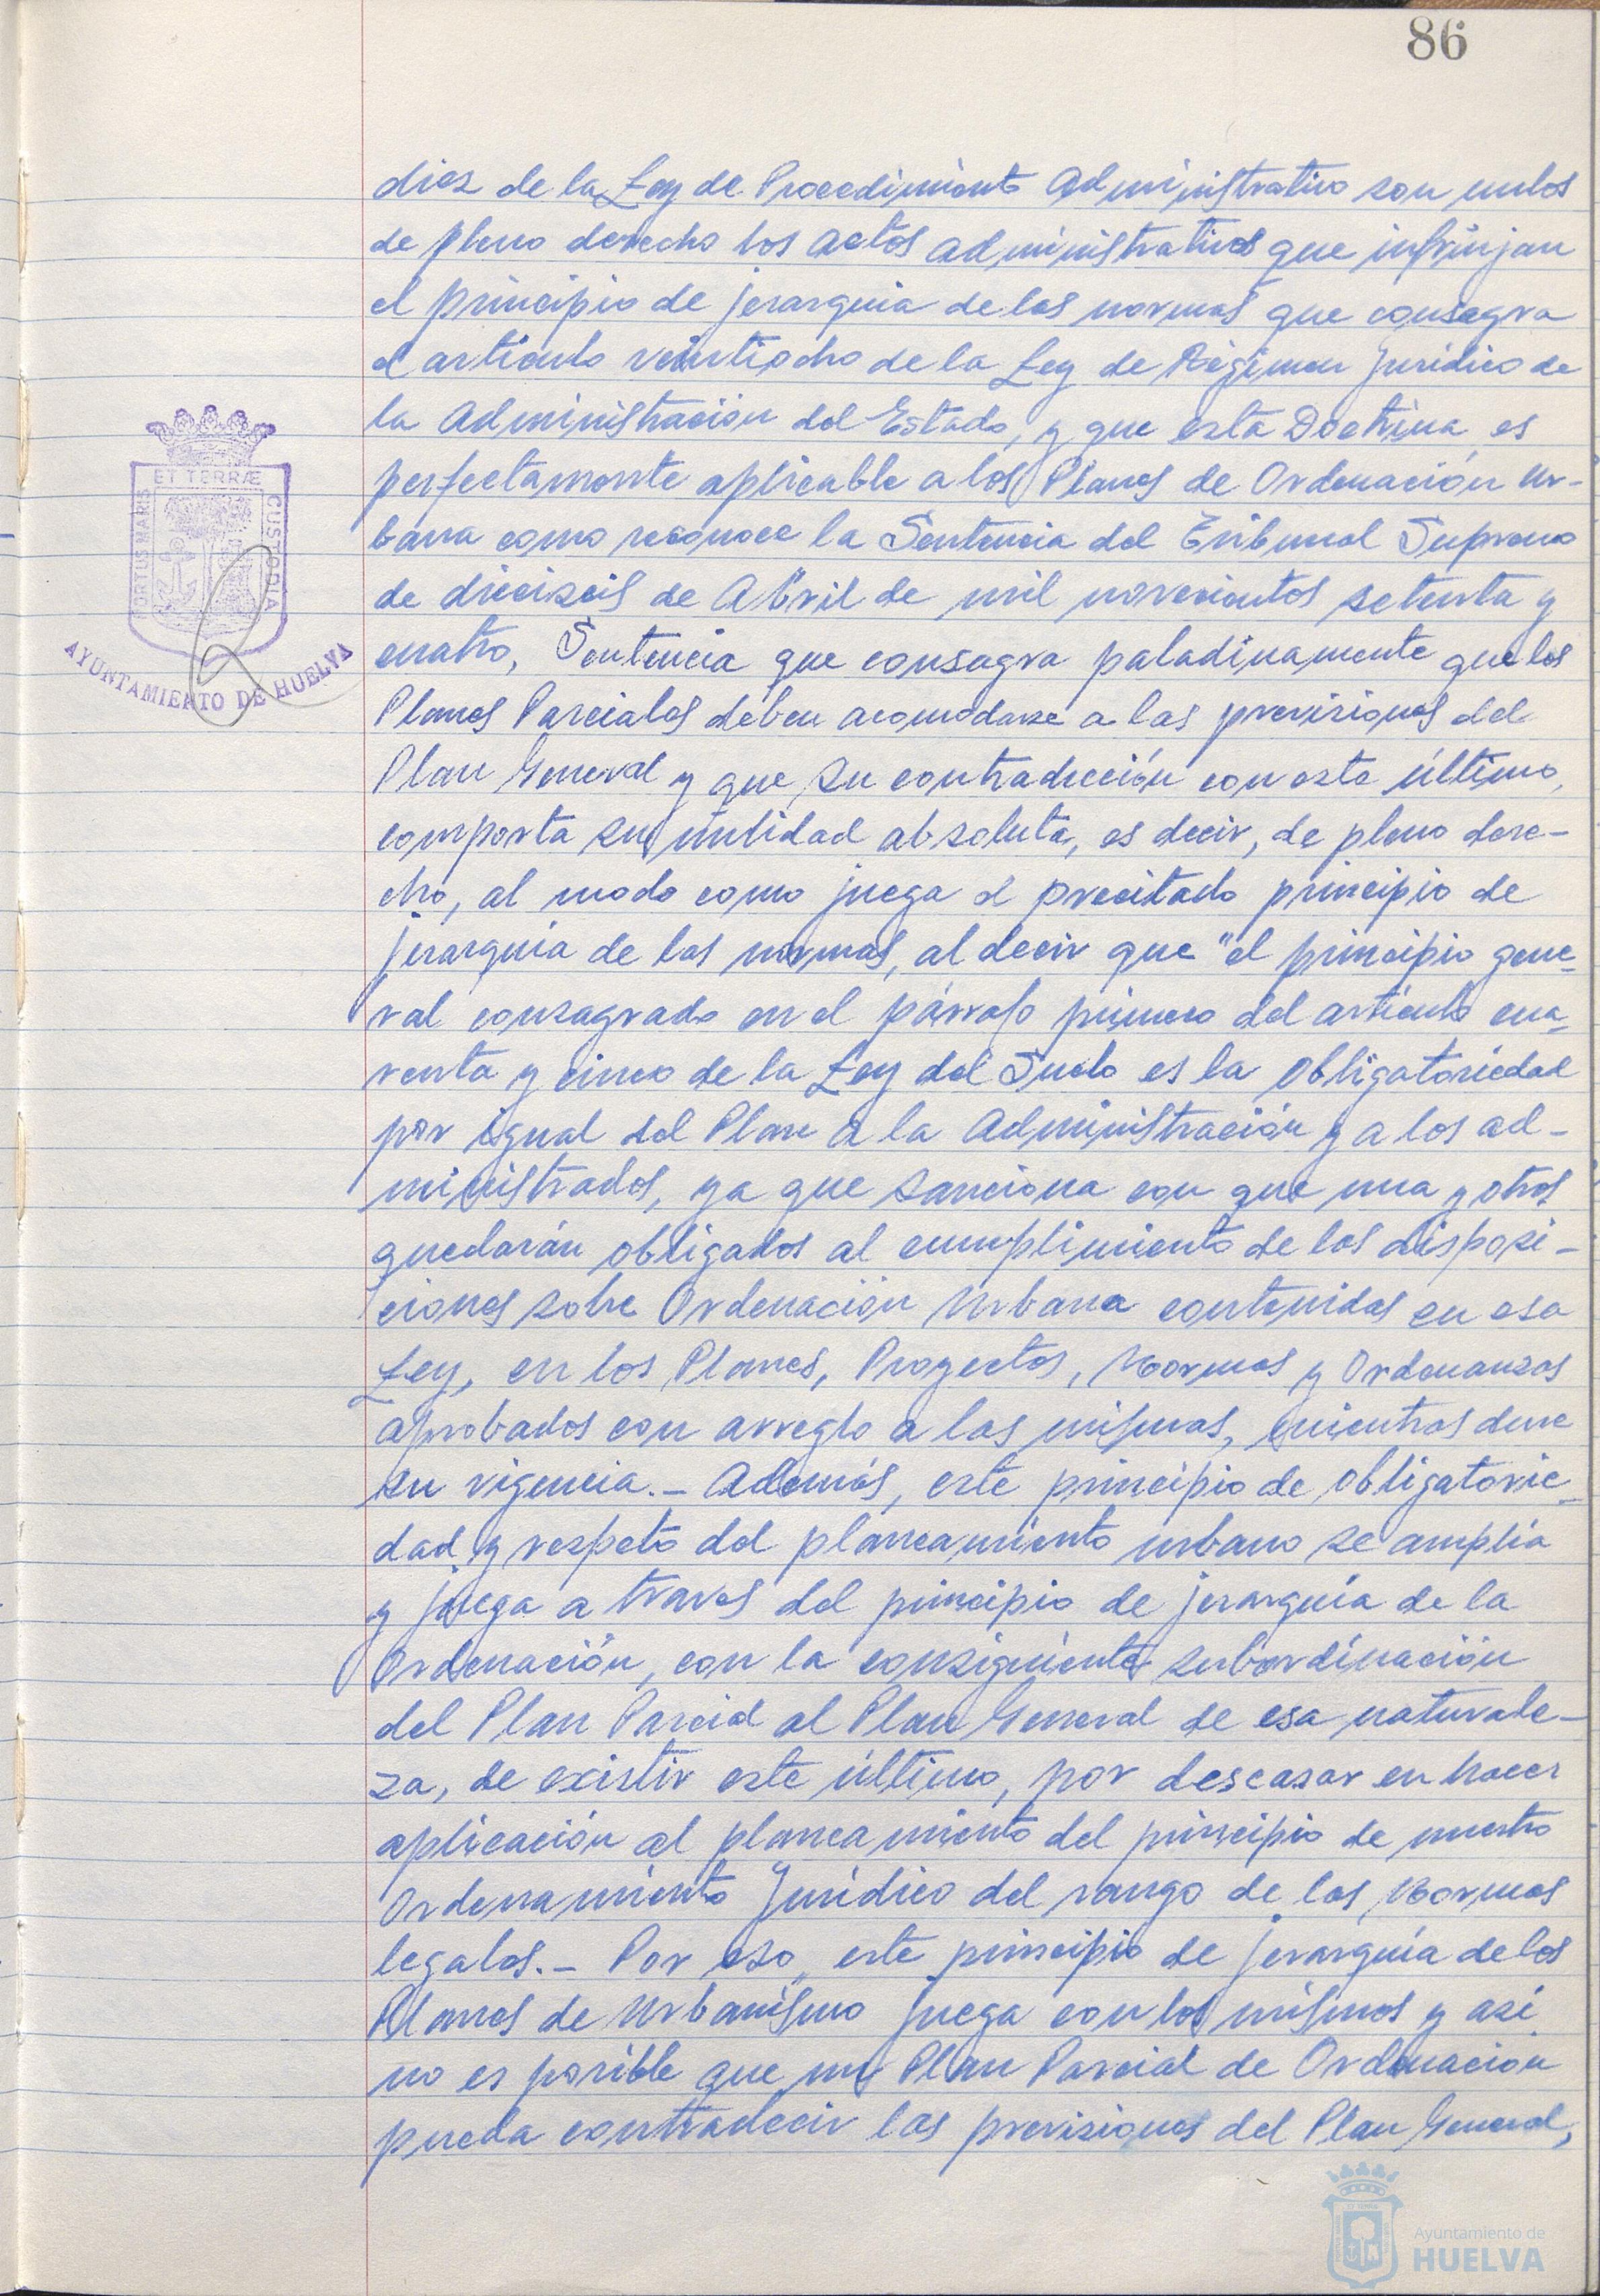 86
diez de la Ley de Procedimiento Administrativo son nulos
de pleno derecho los actos administrativos que infrinjan
el principio de jerarquia de las normas que consagra
el articulo veintiocho de la Ley de Régimen Jurídico de
la Administración del Estado, y que esta Doctrina, es
perfectamente aplicable a los Planes de Ordenación Ur-
bana como reconoce la Sentencia del Tribunal Supremo
de dieciseis de Abril de mil novecientos setenta y
cuatro, Sentencia que consagra paladinamente que los
Planes Parciales deben acomodarse a las previsiones del
Plan General y que su contradicción con este último,
comporta su nulidad absoluta, es decir, de pleno dere-
cho, al modo como juega el precitado principio de
jerarquía de las normas, al decir que "el principio gene-
ral consagrado en el párrafo primero del articulo cua-
renta y cinco de la Ley del Suelo es la obligatoriedad
por igual del Plan a la Administración y a los ad-
ministrados, ya que sanciona con que una y otros
quedarán obligados al cumplimiento de las disposi-
ciones sobre Ordenación Urbana contenidas en esa
Ley, en los Planes, Proyectos, Normas y Ordenanzas
aprobados con arreglo a las mismas, mientras dure
su vigencia.- Además, este principio de obligatorie-
dad y respeto del planeamiento urbano se amplía
y juega a traves del principio de jerarquía de la
Ordenación, con la consiguiente subordinación
del Plan Parcial al Plan General de esa naturale-
za, de existir este último, por descasar en hacer
aplicación al planeamiento del principio de nuestro
Ordenamiento Jurídico del rango de las Normas
legales.- Por eso, este principio de jerarquía de los
Planes de Urbanismo juega con los mismos y asi
no es posible que un Plan Parcial de Ordenación
pueda contradecir las previsiones del Plan General,
PORTUS MARIS
ET TERRÆ
CUSTODIA
AYUNTAMIENTO DE HUELVA
Ayuntamiento de
HUELVA